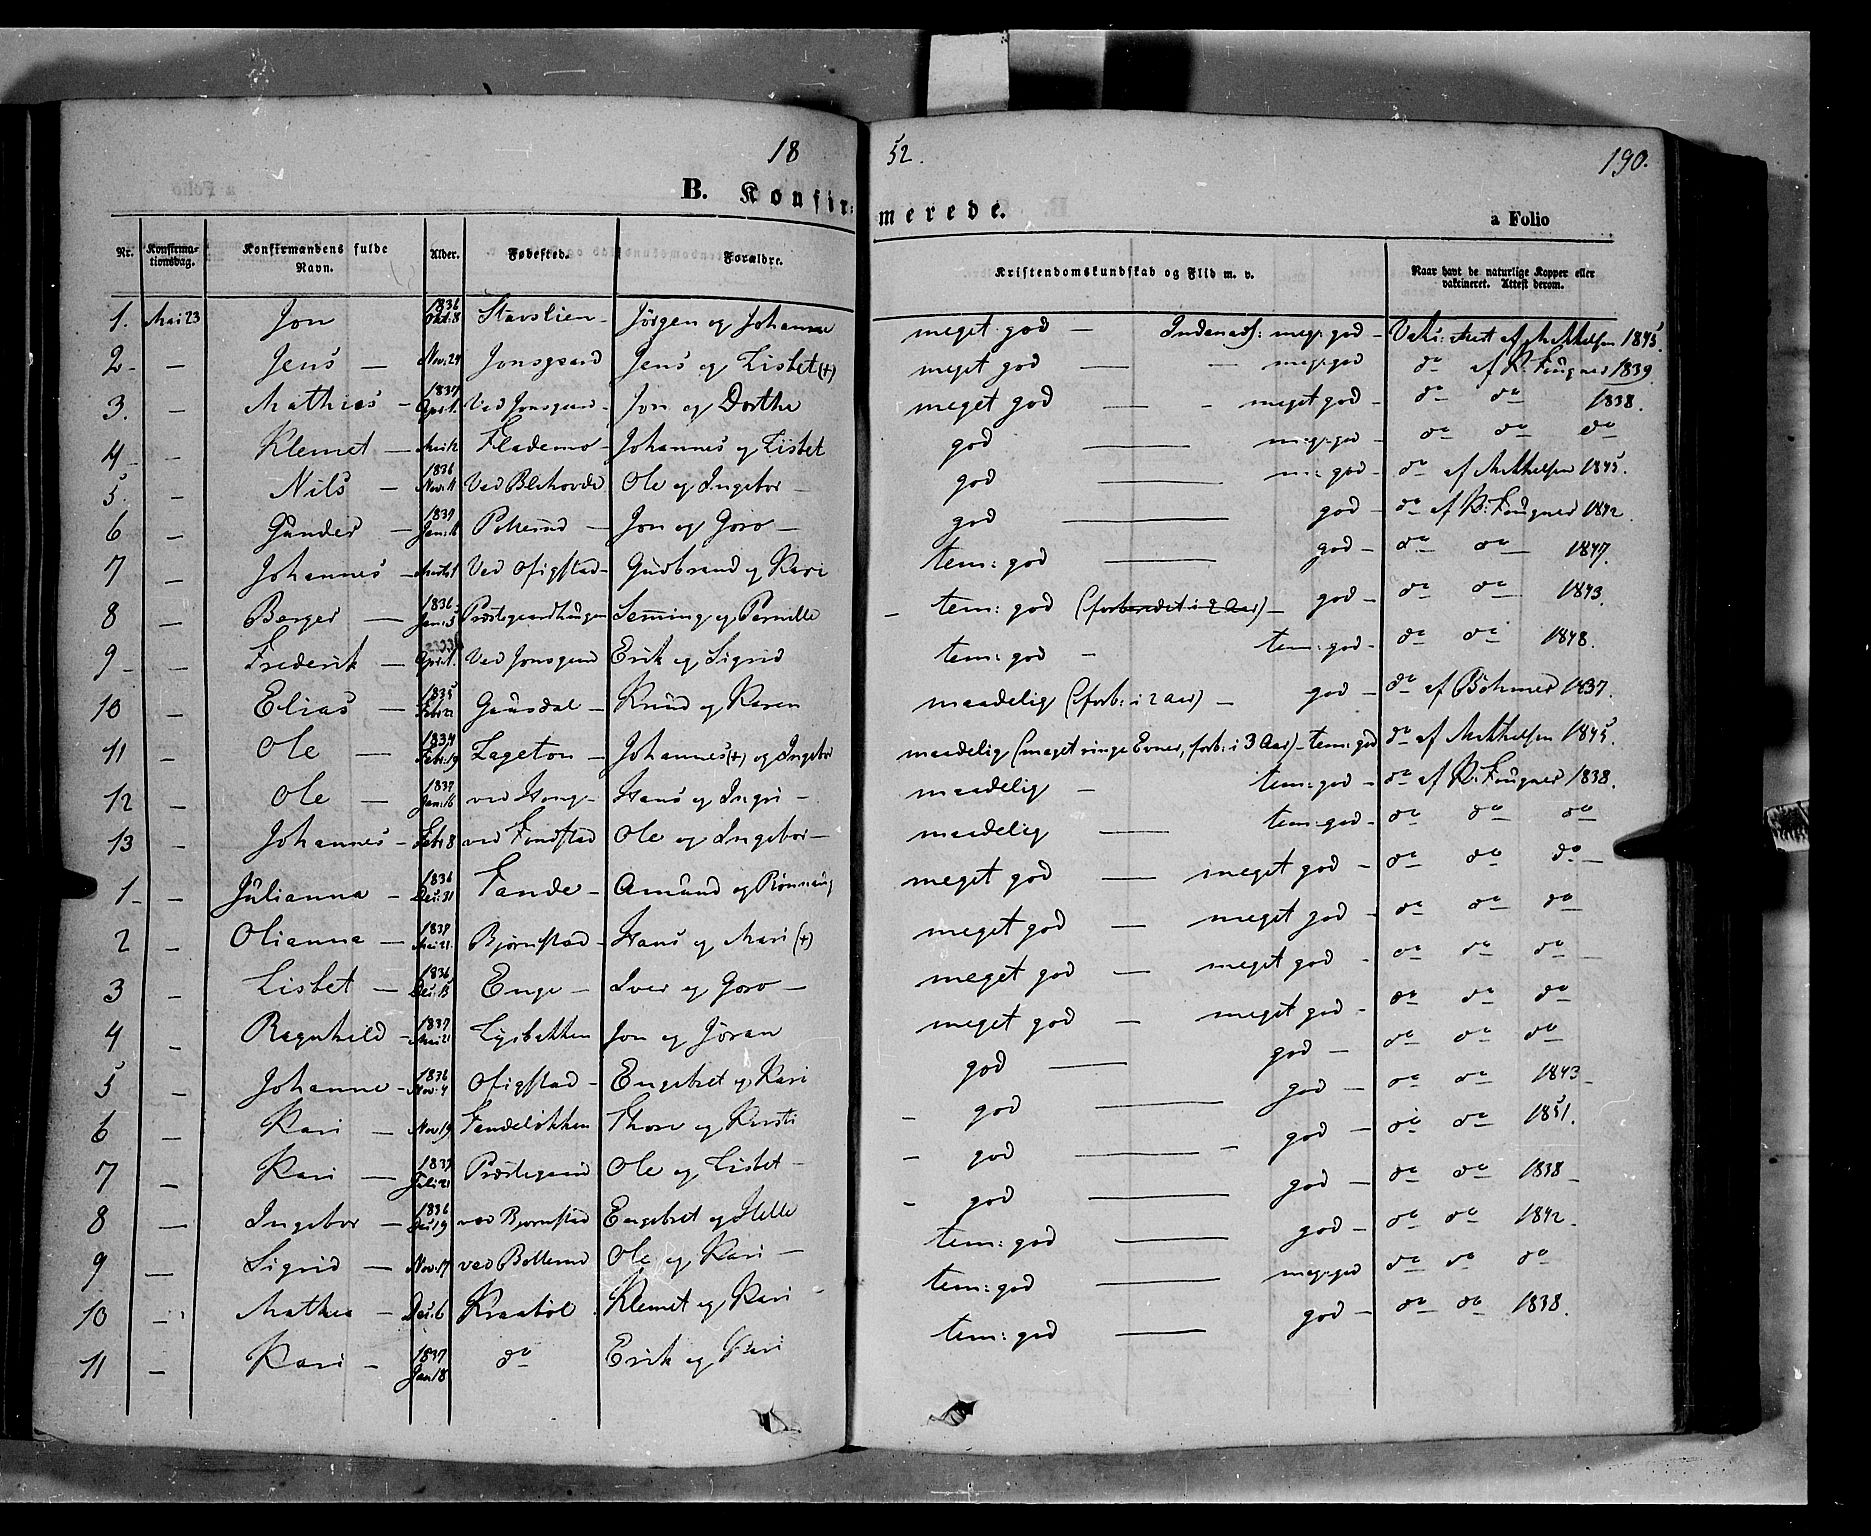 18 52. 190.
B. Konfirmerede. a Folio
Nr. Konfirmationsdag. Konfirmandens fulde Navn. Alder. Fødested. Forældre. Kristendomskundskab og Flid m. v. Naar havt de naturlige Kopper eller vaktineret. Attest derom.
1. Mai 23 Jon 1836 Okt: 8 Stavslien - Jörgen og Johanne meget god - Indenadl: meg: god - Vaks: Attest af Mikkelsen 1845.
2 - Jens - Nov: 24 Jonsgaard Jens og Lisbet (+) meget god - - meg: god do af R: Fougner 1839
3. - Mathias - 1837 April Ved Jonsgaard - Jon og Dorthe meget god - - meget god - do do 1838.
4 - Klemet - Mai 12 Flademo - Johannes og Lisbet god - meg: god - do do do
5. - Nils - 1836 Nov: 11 Ved Blekovde Ole og Ingebor - god - m: god - do af Mikkelsen 1845.
6 - Gunder - 1837 Jan: Pollerud - Jon og Goro - god - god - do af R: Fougner 1842.
7 - Johannes - Marts 1 Ved Ofigstad - Gudbrand og Kari tem: god - god - do do 1847.
8 - Berger - 1836 Jan: 5 Prestegaardhaugen Semming og Pernille - tem: god (forberedet i 2 Aar) - god - do do 1843.
9 - Frederik - April Ved Jonsgaard Erik og Sigrid tem: god - tem: god - do do 1848.
10 - Elias - 1835 Febr: 22 Gausdal - Knud og Karen maadelig (forb: i 2 aar) - god - do af Böhmer 1837.
11 - Ole - 1834 Febr: 19 Lageton - Johannes (+) og Ingebor maadelig (meget ringe Evner, forb: i 3 Aar) - tem: god do af Mikkelsen 1845.
12 - Ole - 1837 Jan: 16 ved Haug - Hans og Ingri - maadelig - tem: god - do af R: Fougner 1838.
13 - Johannes - Febr 8 ved Fondstad Ole og Ingebor - maadelig - tem: god - do do do
1 - Julianna - 1836 Dec: 31 Fande - Amund og Rönnaug meget god - meget god - do do do -
2 - Olianna - 1837 Mai 21. Bjørnstad - Hans og Mari (+) meget god - meget god - do do do
3 - Lisbet - 1836 Dec: 13 Enge - Iver og Goro - meget god - meget god - do do do -
4 - Ragnhild - 1837 Mai 21 Lysbakken Jon og Jöran meget god - meget god - do do do
5 - Johanne - 1836 Nov: 4 Ofigstad - Engebret og Kari god - god - do do do
6 - Kari - Nov 19 Fandeløkken Thore og Kersti - god - god - do do 1843 -
7 - Kari - 1837 Juli 21 Prestegaard Ole og Lisbet - - god - - god - do do 1851.
8 - Ingebor - 1836 Dec: 19 ved Bjørnstad Engebret og Helle - god - god - do do 1838 -
9 - Sigrid - Nov: 17 ved Bollerud Ole og Kari - tem: god - god - do do 1842 -
10 - Mathea - Dec: 6 Kraabøl - Klemet og Kari - tem: god - meg: god do do do
11 - Kari - 1837 Jan 18 do Erik og Kari tem: god - god - do do 1838.